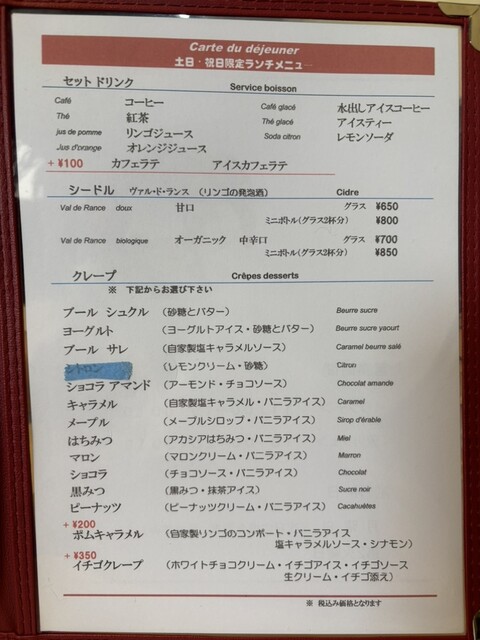 Carte du déjeuner
土日・祝日限定ランチメニュー
セット ドリンク Service boisson
Café コーヒー Café glacé 水出しアイスコーヒー
Thé 紅茶 Thé glacé アイスティー
jus de pomme リンゴジュース Soda citron レモンソーダ
Jus d'orange オレンジジュース
+ ¥100 カフェラテ アイスカフェラテ
シードル ヴァル・ド・ランス （リンゴの発泡酒） Cidre
Val de Rance doux 甘口 グラス ¥650
ミニボトル（グラス2杯分） ¥800
Val de Rance biologique オーガニック 中辛口 グラス ¥700
ミニボトル（グラス2杯分） ¥850
クレープ Crêpes desserts
※ 下記からお選び下さい
ブール シュクル （砂糖とバター） Beurre sucre
ヨーグルト （ヨーグルトアイス・砂糖とバター） Beurre sucre yaourt
ブール サレ （自家製塩キャラメルソース） Caramel beurre salé
シトロン （レモンクリーム・砂糖） Citron
ショコラ アマンド （アーモンド・チョコソース） Chocolat amande
キャラメル （自家製塩キャラメル・バニラアイス） Caramel
メープル （メープルシロップ・バニラアイス） Sirop d'érable
はちみつ （アカシアはちみつ・バニラアイス） Miel
マロン （マロンクリーム・バニラアイス） Marron
ショコラ （チョコソース・バニラアイス） Chocolat
黒みつ （黒みつ・抹茶アイス） Sucre noir
ピーナッツ （ピーナッツクリーム・バニラアイス） Cacahuètes
+ ¥200
ポムキャラメル （自家製リンゴのコンポート・バニラアイス
塩キャラメルソース・シナモン）
+ ¥350
イチゴクレープ （ホワイトチョコクリーム・イチゴアイス・イチゴソース
生クリーム・イチゴ添え）
※ 税込み価格となります